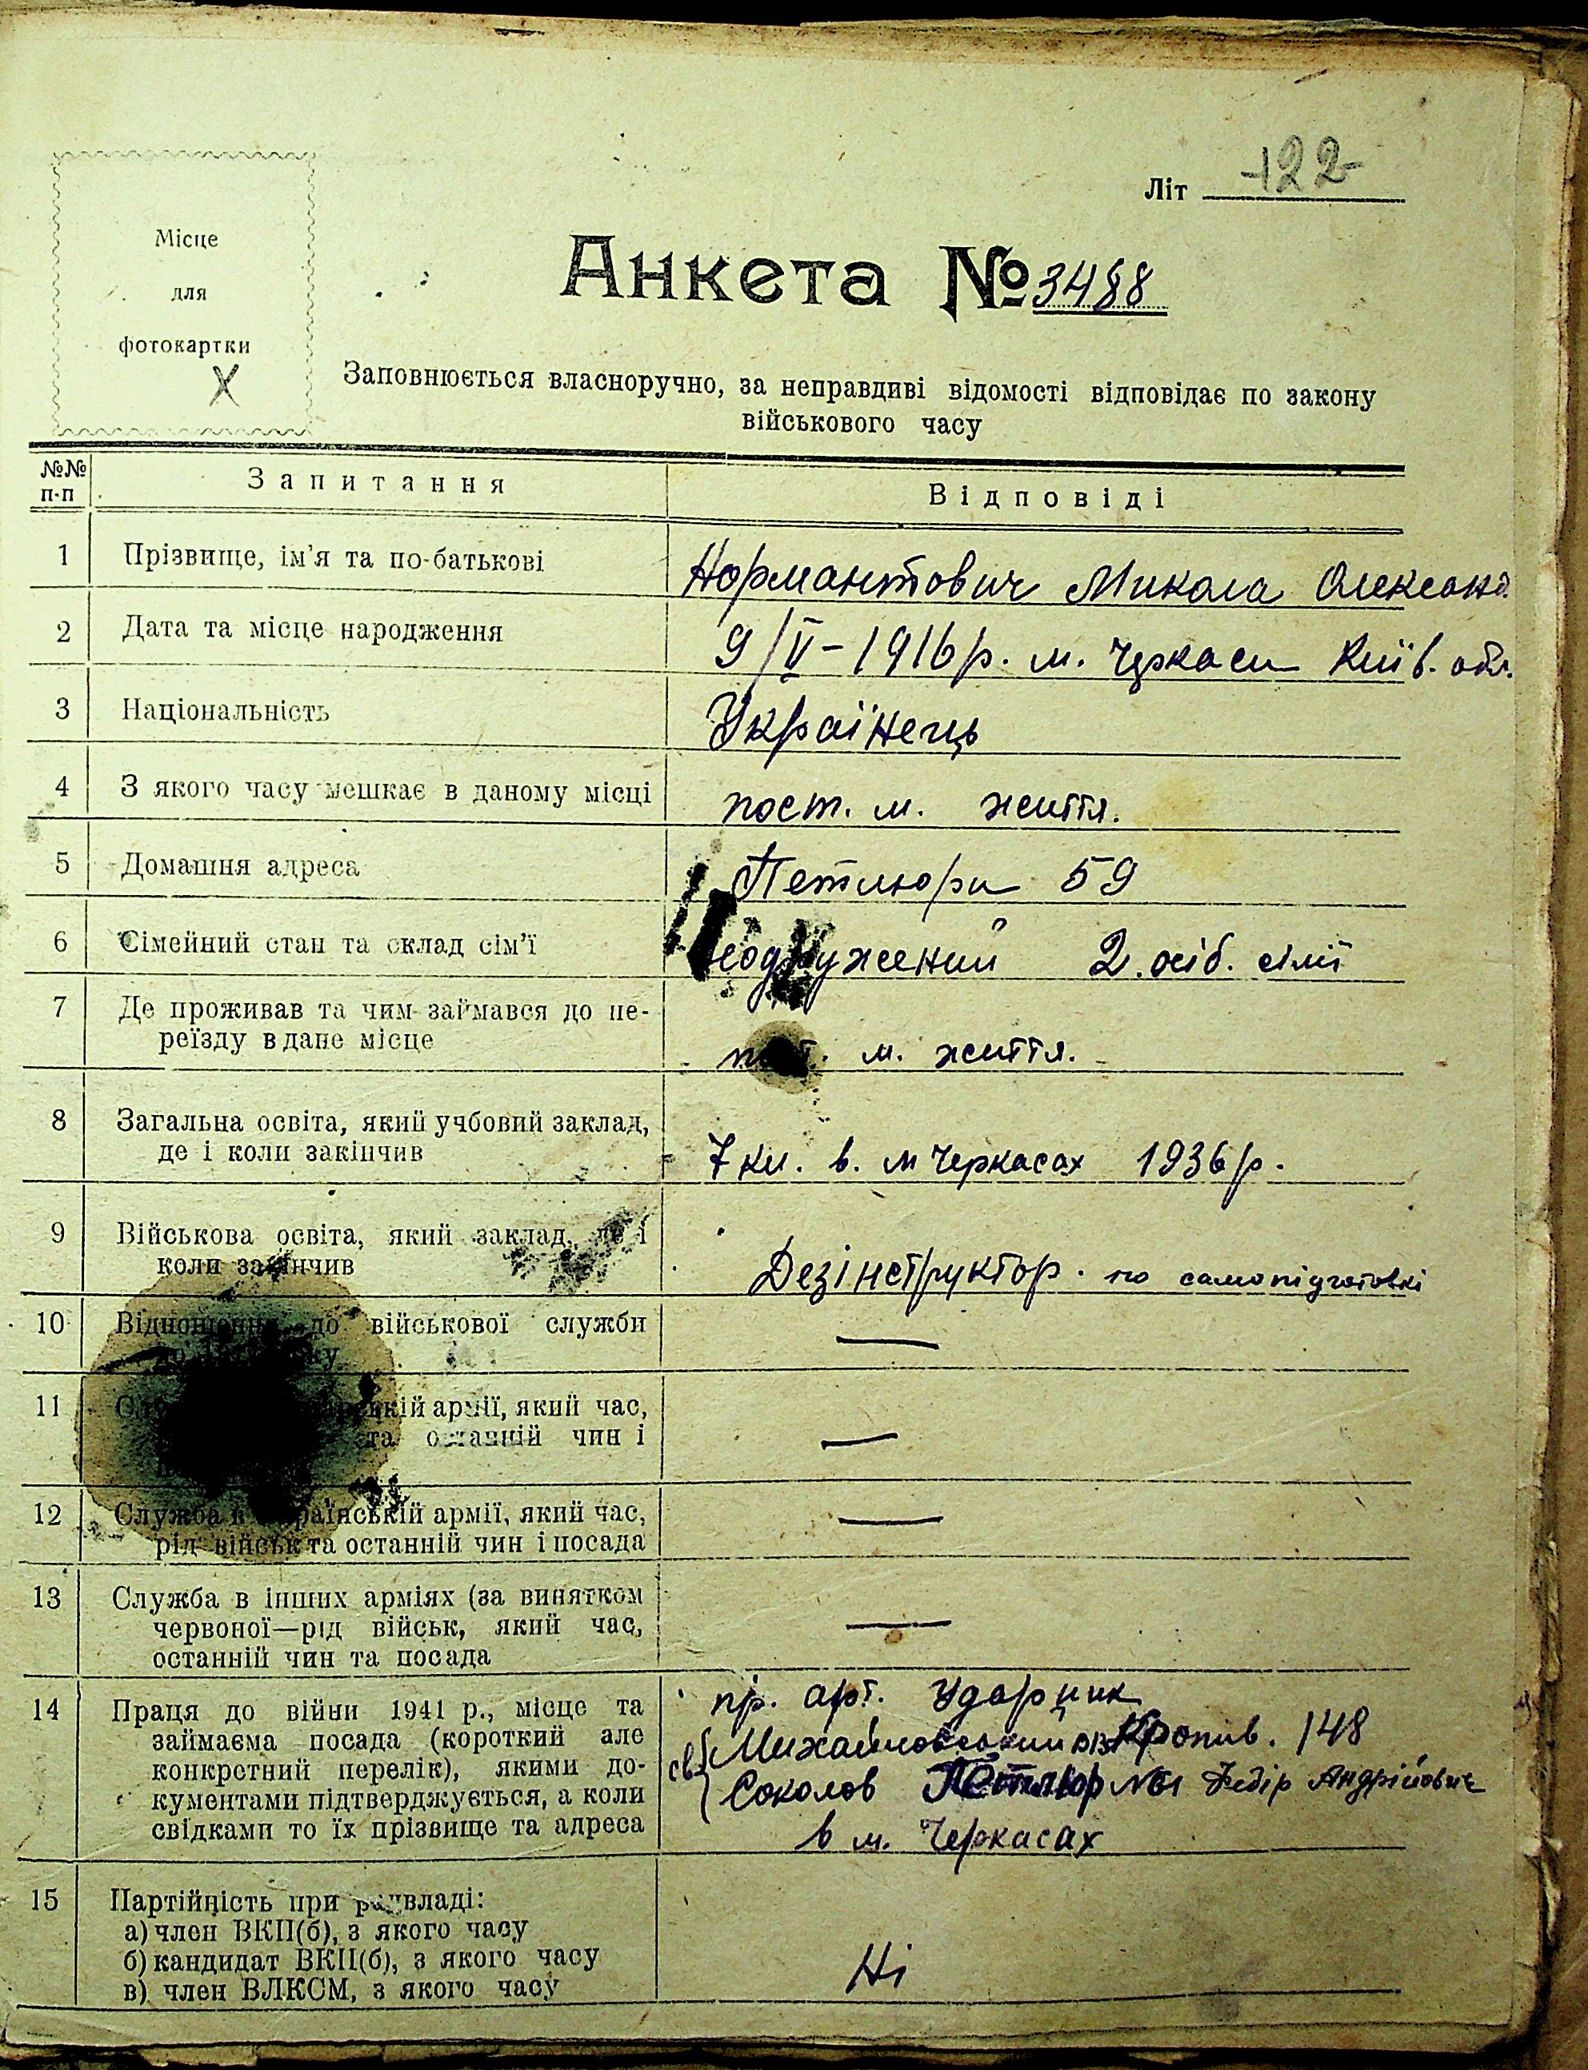 Літ 122
Місце
для
фотокартки
Анкета № 3488
Заповнюється власноручно, за неправдиві відомості відповідає по закону
військового часу
№№ п-п Запитання Відповіді
1 Прізвище, ім'я та по-батькові Нормантович Микола Олександ.
2 Дата та місце народження 9/V-1916 р. м. Черкаси Київ. обл.
3 Національність Українець
4 З якого часу мешкає в даному місці пост. м. життя.
5 Домашня адреса Петлюри 59
6 Сімейний стан та склад сім'ї 2. осіб. сімї
7 Де проживав та чим займався до пе-
реїзду в дане місце м. життя.
8 Загальна освіта, який учбовий заклад,
де і коли закінчив 7 кл. в. м Черкасах 1936 р.
9 Військова освіта, який заклад, де і
коли закінчив Дезінструктор. по самопідготовкі
10 Відношення до військової служби —
11 армії, який час, —
та останній чин і
12 Служба в українській армії, який час, —
рід військ та останній чин і посада
13 Служба в інших арміях (за винятком
червоної—рід військ, який час, —
останній чин та посада
14 Праця до війни 1941 р., місце та пр. арт. Ударник
займаєма посада (короткий але Михайловський Кропив. 148
конкретний перелік), якими до- св.
кументами підтверджується, а коли Соколов Петлюр Федір Андрійович
свідками то їх прізвище та адреса в м. Черкасах
15 Партійність при радвладі:
а) член ВКП(б), з якого часу
б) кандидат ВКП(б), з якого часу Ні
в) член ВЛКСМ, з якого часу